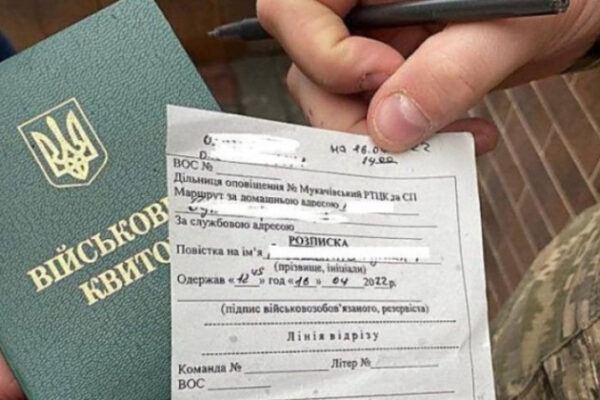 ВІЙСЬКОВ
КВИТО
на 16.0 22
14.00
ВОС №
Дільниця оповіщення № Мукачівський РТЦК та СП
Маршрут за домашньою адресою
За службовою адресою
РОЗПИСКА
Повістка на ім'я
(прізвище, ініціали)
Одержав «12 45» год «16» 04 2022р.
(підпис військовозобов'язаного, резервіста)
Лінія відрізу
Команда № Літер №
ВОС